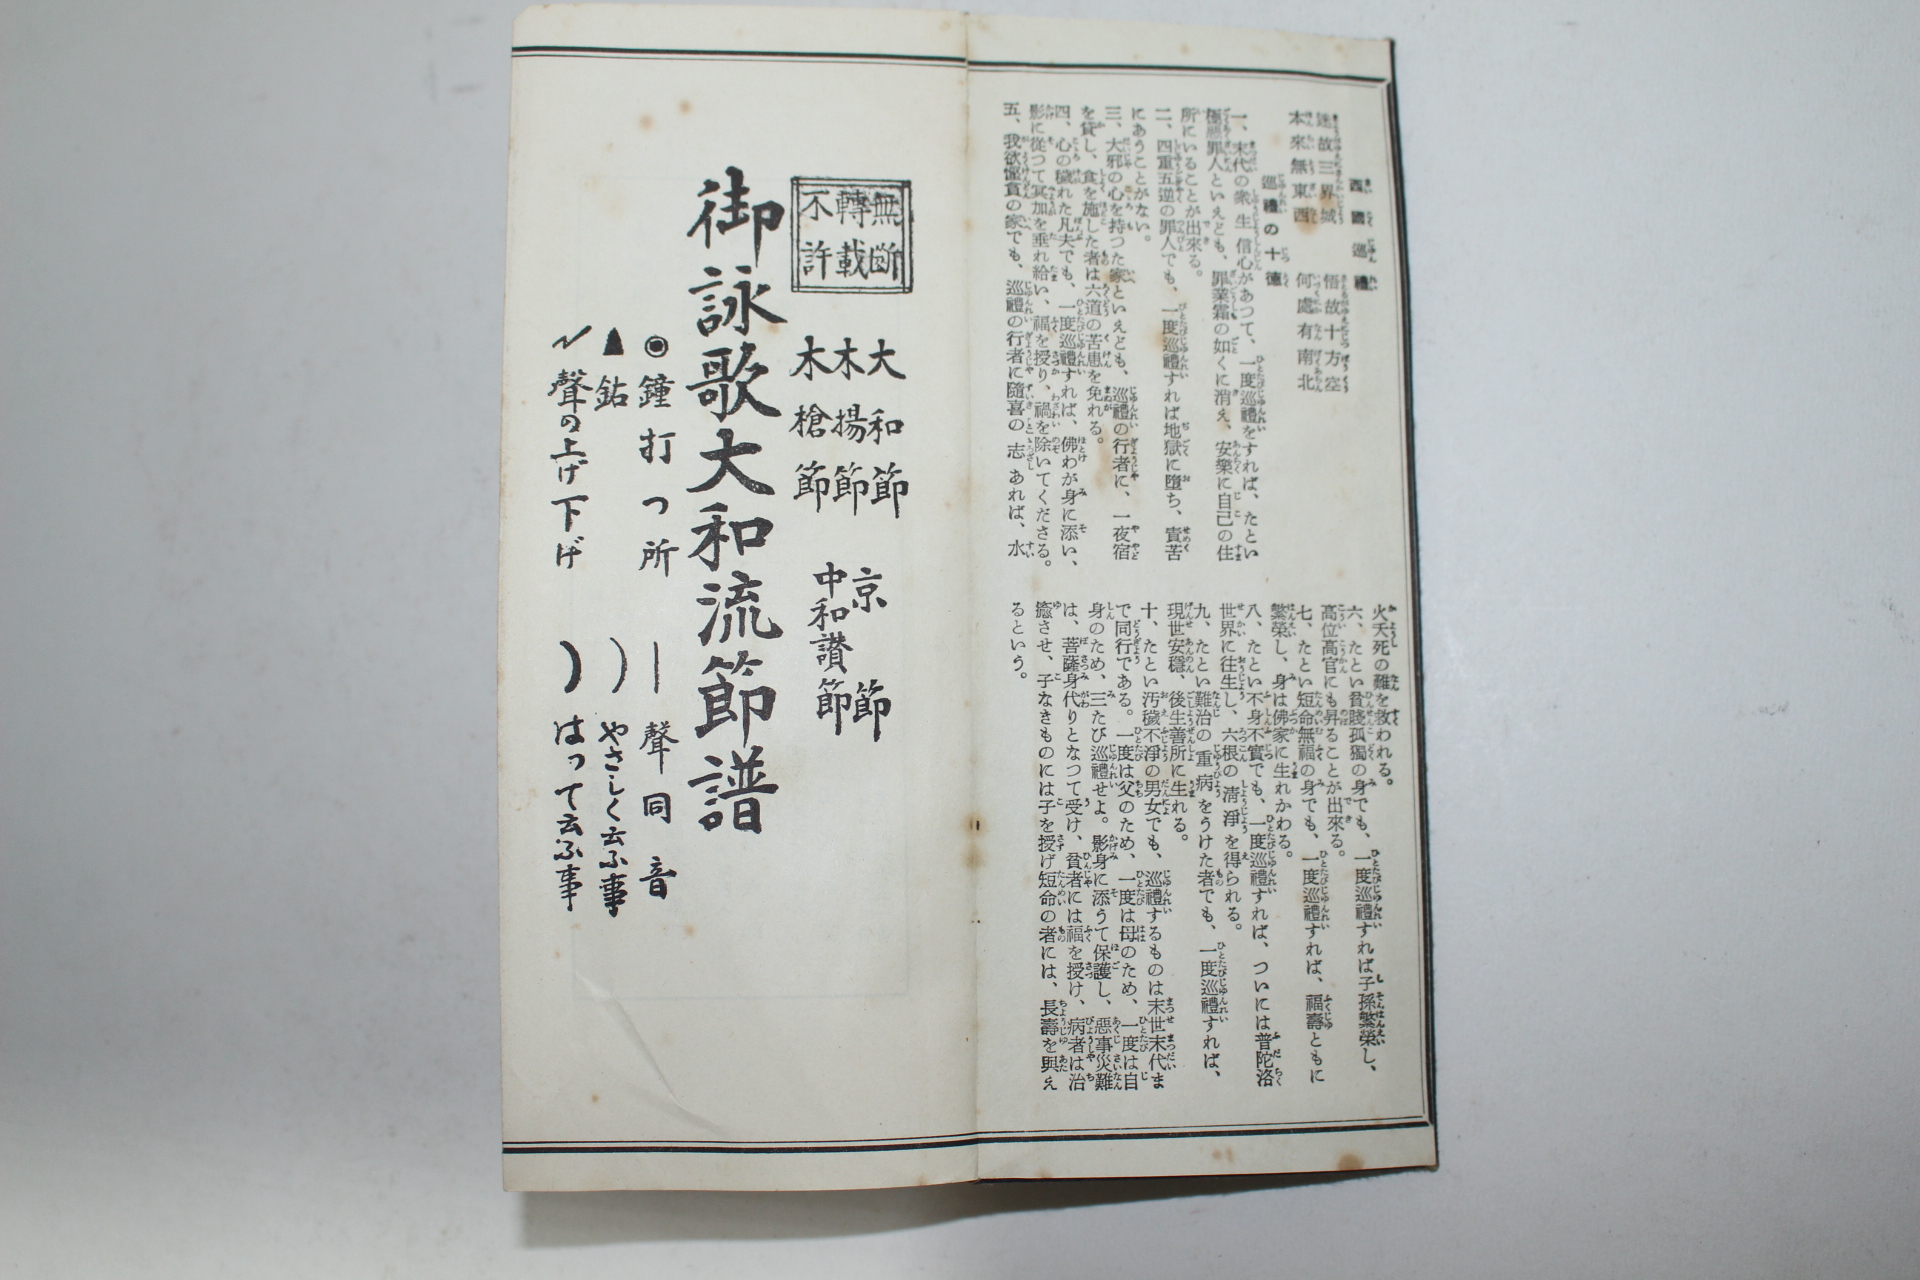 西國巡禮
迷故三界城　悟故十方空
本來無東西　何處有南北
巡禮の十德
一、末代の衆生信心があつて、一度巡禮をすれば、たとい
極惡罪人といえども、罪業霜の如くに消え、安樂に自己の住
所にいることが出來る。
二、四重五逆の罪人でも、一度巡禮すれば地獄に墮ち、責苦
にあうことがない。
三、大邪の心を持つた家といえども、巡禮の行者に、一夜宿
を貸し、食を施した者は六道の苦患を免れる。
四、心の穢れた凡夫でも、一度巡禮すれば、佛わが身に添い、
影に從つて冥加を垂れ給い、福を授り、禍を除いてくださる。
五、我欲慳貪の家でも、巡禮の行者に隨喜の志あれば、水
火夭死の難を救われる。
六、たとい貧賤孤獨の身でも、一度巡禮すれば子孫繁榮し、
高位高官にも昇ることが出來る。
七、たとい短命無福の身でも、一度巡禮すれば、福壽ともに
繁榮し、身は佛家に生れかわる。
八、たとい不身不實でも、一度巡禮すれば、ついには普陀洛
世界に往生し、六根の淸淨を得られる。
九、たとい難治の重病をうけた者でも、一度巡禮すれば、
現世安穩、後生善所に生れる。
十、たとい汚穢不淨の男女でも、巡禮するものは末世末代ま
で同行である。一度は父のため、一度は母のため、一度は自
身のため、三たび巡禮せよ。影身に添うて保護し、惡事災難
は、菩薩身代りとなつて受け、貧者には福を授け、病者は治
癒させ、子なきものには子を授げ短命の者には、長壽を興え
るという。
無斷
轉載
不許
大和節
木揚節
木槍節
京節
中和讃節
御詠歌大和流節譜
◉鐘打つ所　｜聲同音
▲鉆　）やさしく云ふ事
聲の上げ下げ　）はって云ふ事